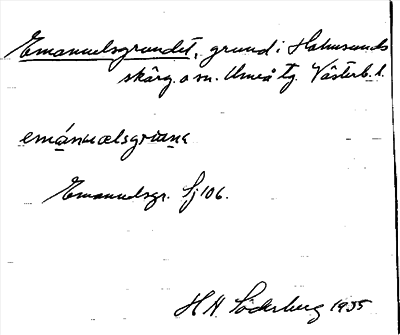 Emanuelsgrundet, grund i Holmsunds
skärg. o sn. Umeå tg. Västerb. l.
emánuælsgrund
Emanuelsgr. Sj 106.
H H Söderberg 1935